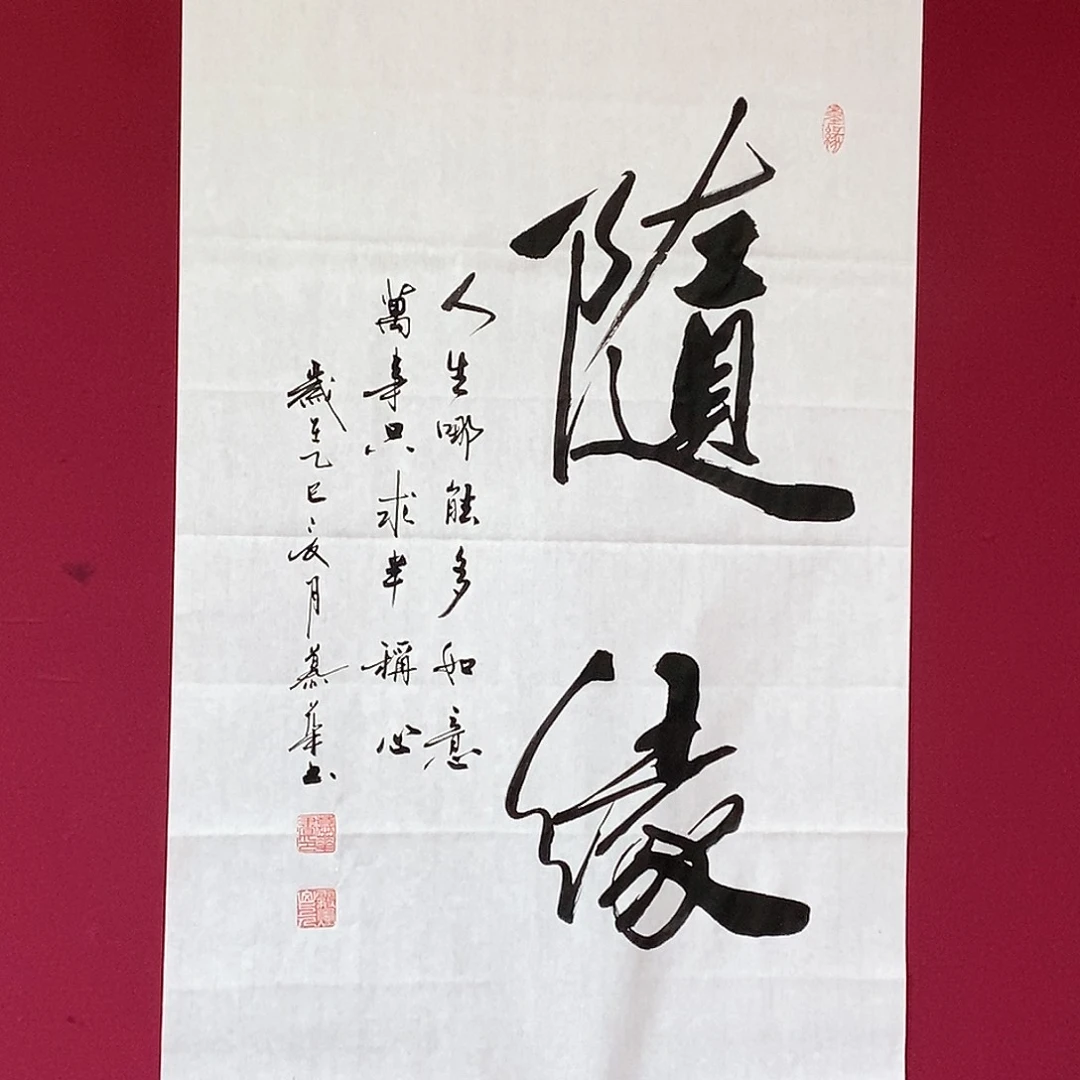 隨緣
人生哪能多如意
萬事只求半稱心
歲在乙巳之夏月慕華書
墨緣